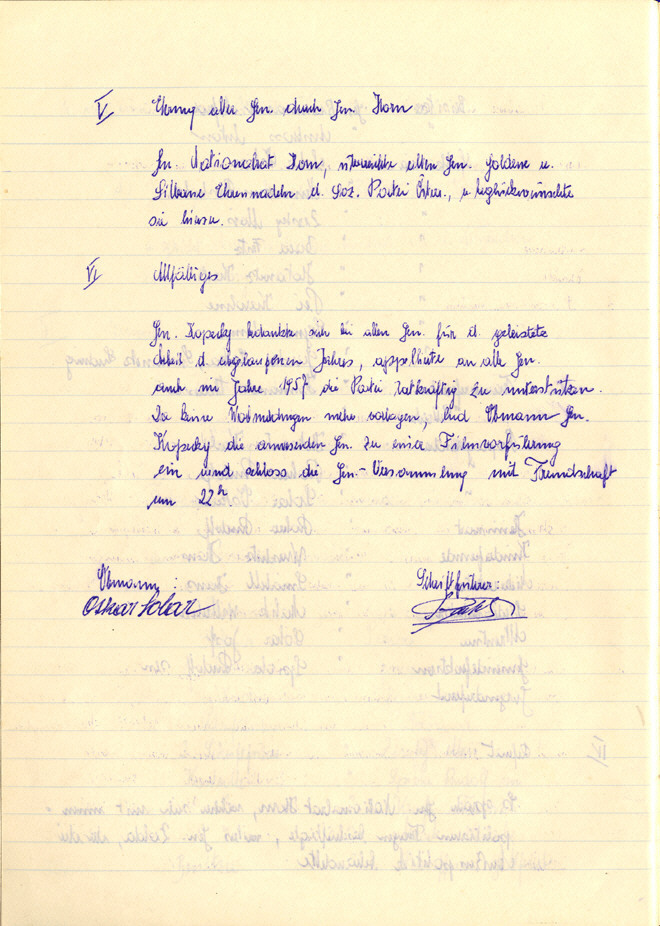 V Ehrung alter Gen. durch Gen. Horn
Gen. Nationalrat Horn, überreichte alten Gen. goldene u.
Silberne Ehrennadeln d. Soz. Partei Östr., u. beglückwünschte
sie hiezu.
VI Allfälliges
Gen. Kopecky bedankte sich bei allen Gen. für d. geleistete
Arbeit d. abgelaufenen Jahres, appelierte an alle Gen.
auch im Jahre 1957 die Partei tatkräftig zu unterstützen.
Da keine Wortmeldungen mehr vorlagen, lud Obmann Gen.
Kopecky die anwesenden Gen. zu einer Filmvorführung
ein und schloss die Gen.-Versammlung mit Freundschaft
um 22h
Obmann: Schriftführer:
Oskar Solar